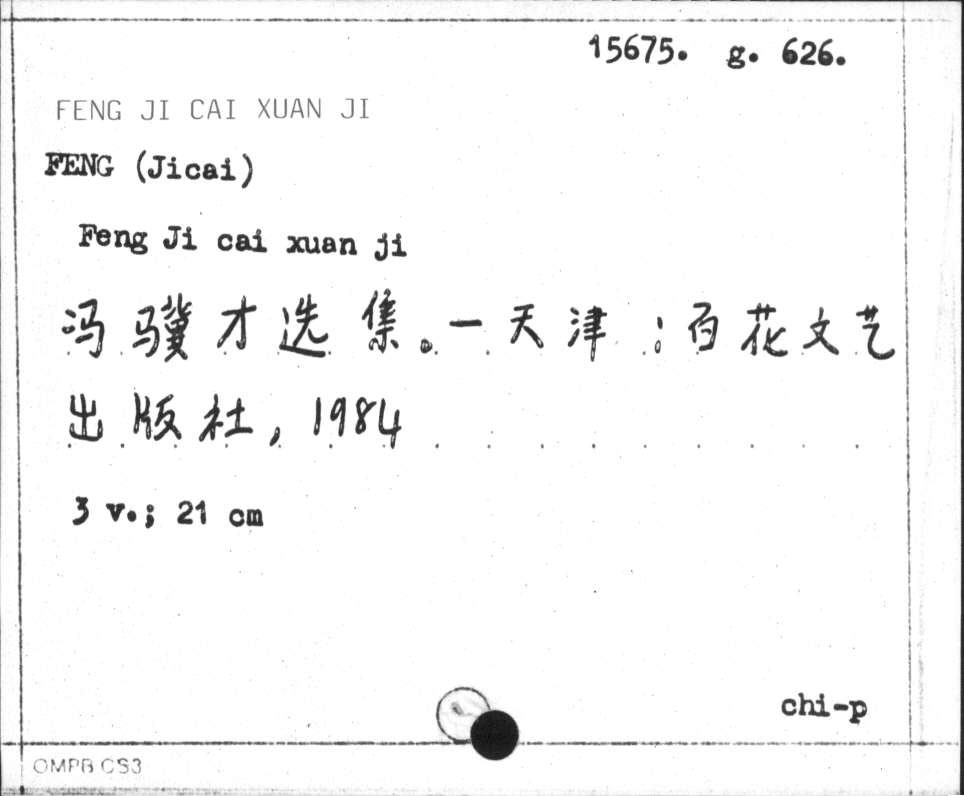 15675. g. 626.
FENG JI CAI XUAN JI
FENG (Jicai)
Feng Ji cai xuan ji
冯骥才选集。— 天津 : 百花文艺
出版社, 1984
3 v.; 21 cm
chi-p
OMPB CS3